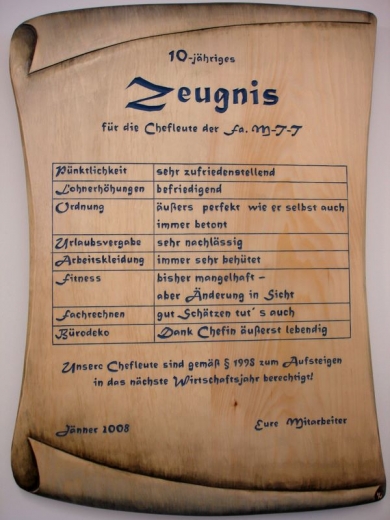 10-jähriges
Zeugnis
für die Chefleute der Fa. M-T-T
Pünktlichkeit sehr zufriedenstellend
Lohnerhöhungen befriedigend
Ordnung äußers perfekt wie er selbst auch
immer betont
Urlaubsvergabe sehr nachlässig
Arbeitskleidung immer sehr behütet
Fitness bisher mangelhaft –
aber Änderung in Sicht
Fachrechnen gut Schätzen tut´s auch
Bürodeko Dank Chefin äußerst lebendig
Unsere Chefleute sind gemäß § 1998 zum Aufsteigen
in das nächste Wirtschaftsjahr berechtigt!
Jänner 2008 Eure Mitarbeiter